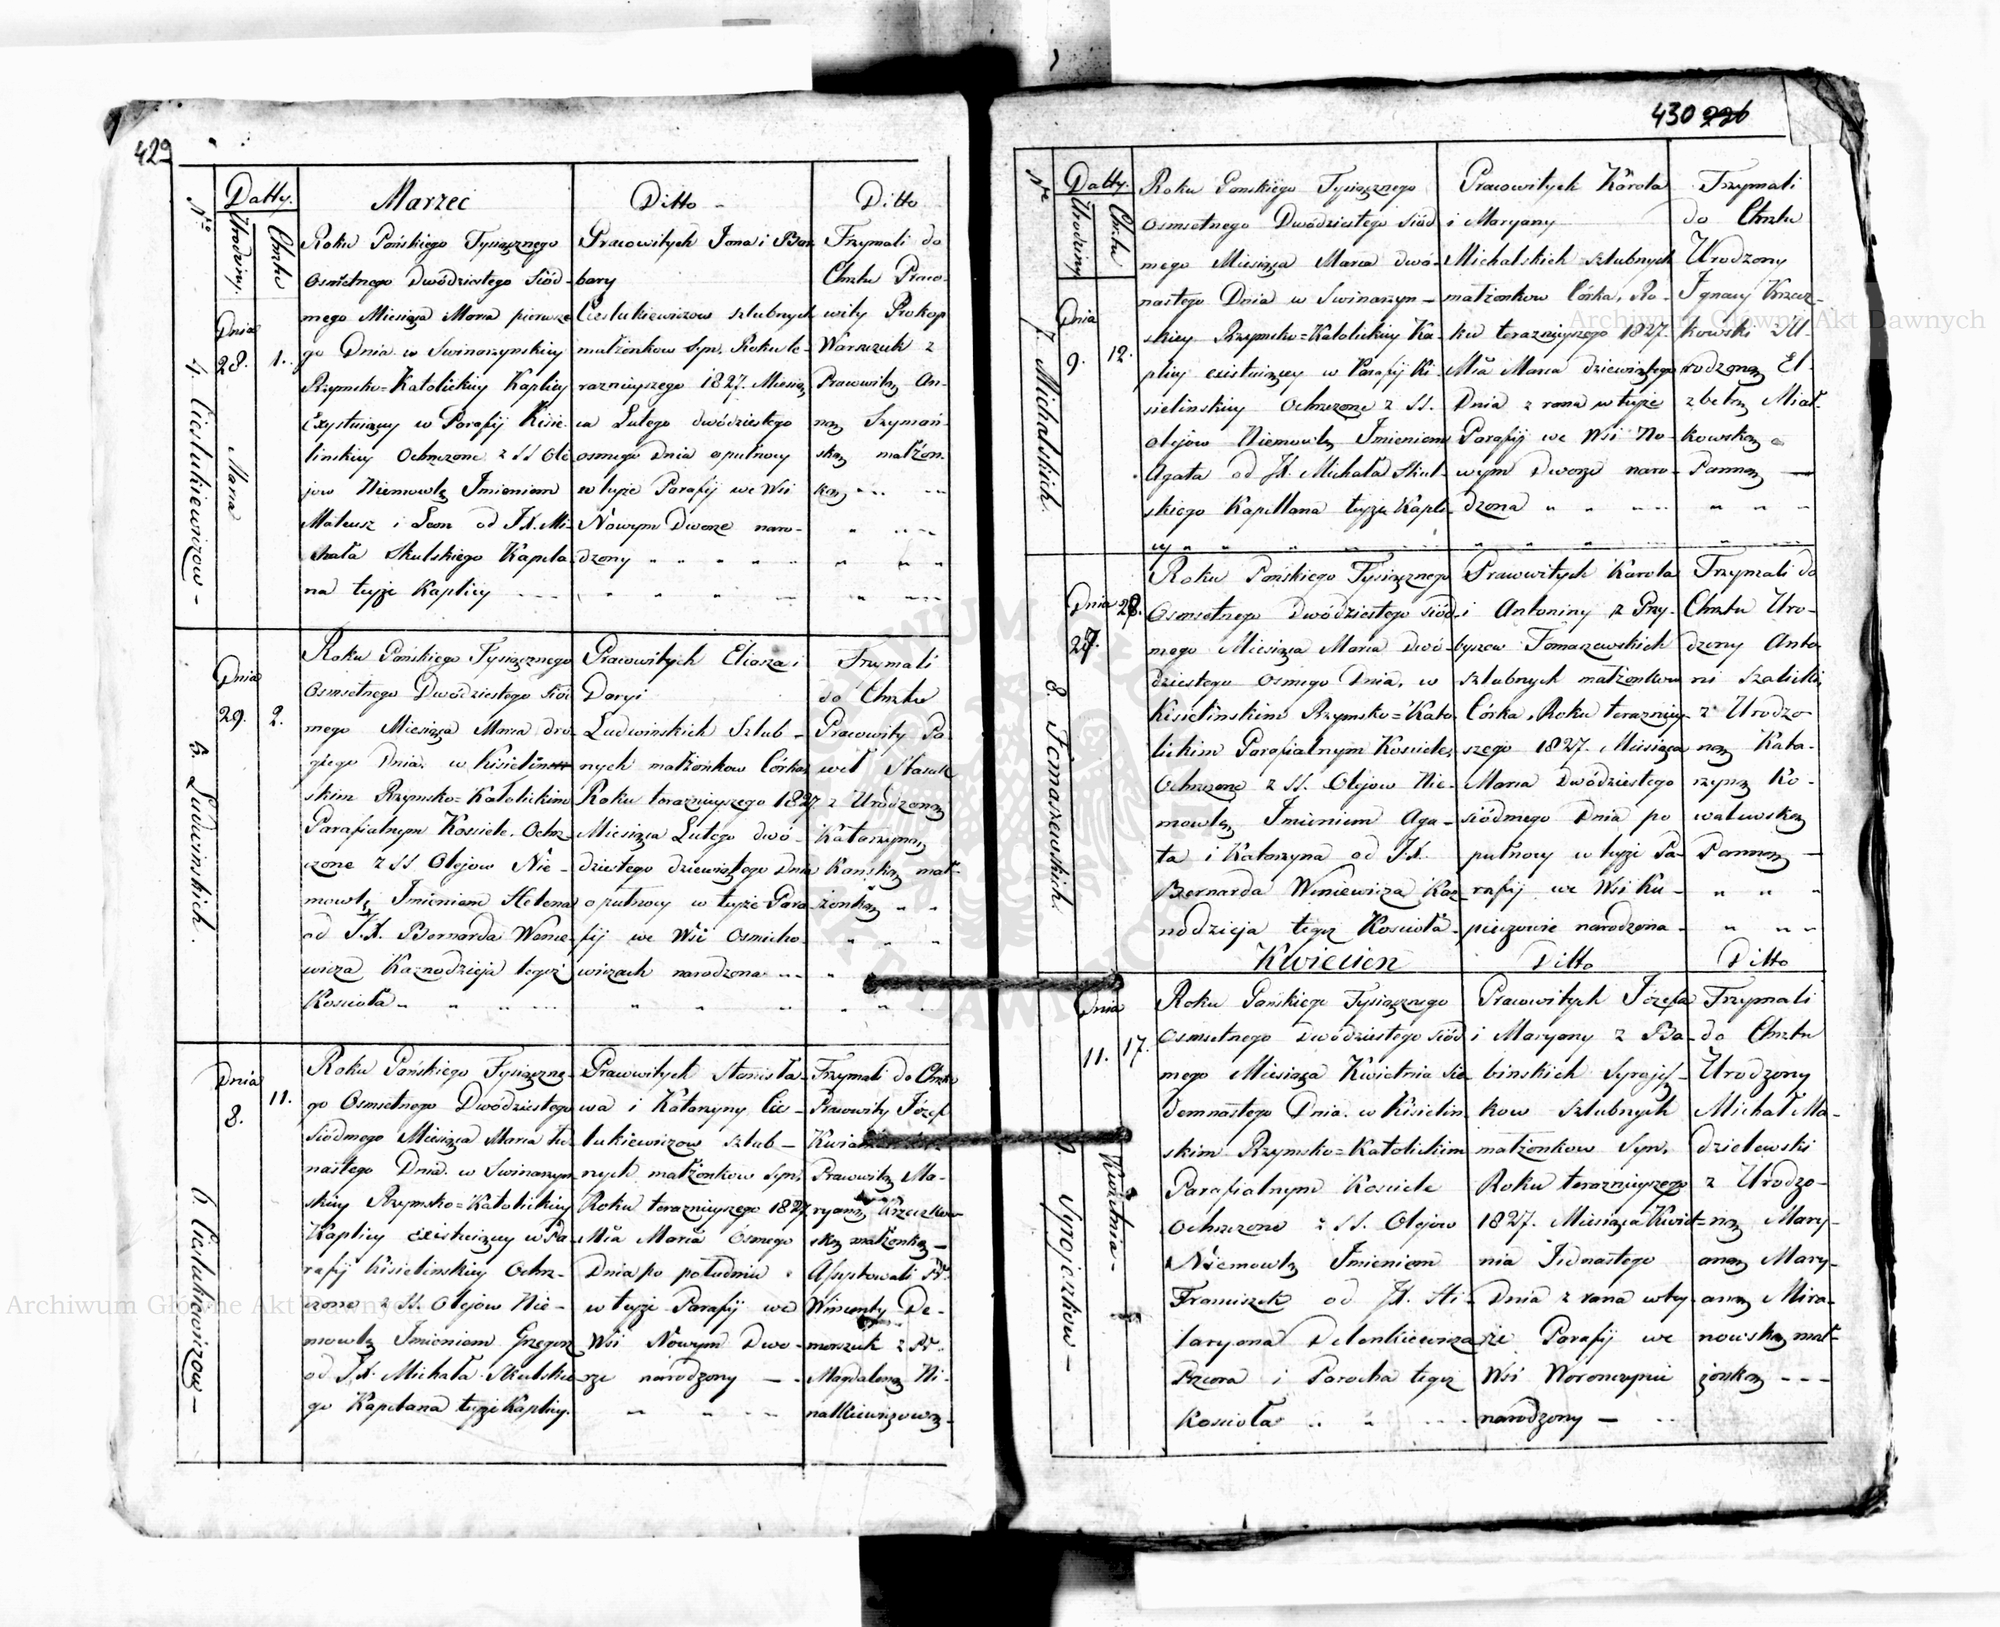 429
No
Datty.
Urodziny.
Chrztu
Marzec
Ditto
Ditto
Dnia
28.
1.
Marca
4. Cieslukiewiczow
Roku Pańskiego Tysiącznego
Osmsetnego Dwódziestego Siód-
mego Miesiąca Marca pierwsze
go Dnia w Swinarzynskiey
Rzymsko=Katolickiey Kaplicy
Exystuiącey w Parafij Kisie-
linskiey Ochrzczone z SS Ole
jow Niemowlę Jmieniem
Mateusz i Leon od J.X. Mi-
chała Skulskiego Kapela-
na teyże Kaplicy
Pracowitych Jana i Bar
bary
Cieslukiewiczow szlubnych
małżonkow Syn, Roku te-
raznieyszego 1827. Miesią
ca Lutego dwódziestego
osmego Dnia o pułnocy
w teyże Parafij we Wsi
Nowym Dworze naro-
dzony
Trzymali do
Chrztu Praco-
wity Prokop
Warszuk z
Pracowitą An-
ną Szymań-
ską małżon-
ką
Dnia
29.
2.
5. Ludwinskich.
Roku Pańskiego Tysiącznego
Osmsetnego Dwódziestego Siód
mego Miesiąca Marca dru-
giego Dnia. w Kisielin
skim Rzymsko=Katolickim
Parafialnym Kosciele. Ochrz-
czone z SS Olejow Nie-
mowlę Jmieniem Helena
od J.X. Bernarda Wonie-
wicza Kaznodzieja tegoż
Kosciola
Pracowitych Eliasza i
Daryi
Ludwinskich Szlub-
nych małżonkow Córka,
Roku teraznieyszego 1827.
Miesiąca Lutego dwó-
dziestego dziewiątego Dnia
o pułnocy w teyże Para-
fij we Wsi Osmicho-
wiczach narodzona
Trzymali
do Chrztu
Pracowity Pa-
weł Stasuk
z Urodzoną
Katarzyną
Kanską mał-
żonką
Dnia
8.
11.
6. Cieslukiewiczow
Roku Pańskiego Tysiączne-
go Osmsetnego Dwódziestego
Siódmego Miesiąca Marca Je-
nastego Dnia. w Swinarzyn
skiey Rzymsko=Katolickiey
Kaplicy existuiącey w Pa-
rafij Kisielinskiey Ochrz-
czone z SS. Olejow Nie-
mowlę Jmieniem Grzegorz
od J.X. Michała Skulskie
go Kapelana teyże Kaplicy.
Pracowitych Stanisła-
wa i Katarzyny Cie-
lukiewiczow szlub-
nych małżonkow Syn,
Roku teraznieyszego 1827
Mca Marca Osmego
Dnia po południu
w teyże Parafij we
Wsi Nowym Dwo-
rze narodzony
Trzymali do Chrztu
Pracowity Józef
Pracowitą Ma-
ryanną
ską małżonką
Assystowali Pr.
Wincenty De-
morszuk z Pr.
Magdaleną Ni-
nalkiewiczowną
430 226
No
Datty.
Urodziny.
Chrztu
Dnia
9.
12.
7. Michalskich.
Roku Panskiego Tysiącznego
Osmsetnego Dwódziestego Siód
mego Miesiąca Marca dwó-
nastego Dnia w Swinarzyn-
skiey Rzymsko=Katolickiey Ka-
plicy existuiącey w Parafij Ki-
sielinskiey Ochrzczone z SS.
Olejow Niemowlę Jmieniem
Agata od JX. Michała Skul-
skiego Kapellana teyże Kapli-
cy
Pracowitych Karola
i Maryany
Michalskich szlubnych
małżonkow Córka, Ro-
ku teraznieyszego 1827.
Mca Marca dziewiątego
Dnia z rana w teyże
Parafij we Wsi No-
wym Dworze naro-
dzona
Trzymali
do Chrztu
Urodzony
Jgnacy Krzecz-
kowski z U-
rodzoną El-
zbetą Miał-
kowską
Panną
Dnia
27.
28.
8. Tomaszewskich.
Roku Pańskiego Tysiącznego
Osmsetnego Dwódziestego Siód
mego Miesiąca Marca Dwó-
dziestego Osmego Dnia. w
Kisielinskim Rzymsko=Kato-
lickim Parafialnym Kosciele,
Ochrzczone z SS. Olejow Nie-
mowlę Jmieniem Aga-
ta i Katarzyna od J.X.
Bernarda Woniewicza Kaz-
nodzieja tegoż Kosciola
Pracowitych Karola
i Antoniny z Przy-
byszew Tomaszewskich
szlubnych małżonkow
Córka, Roku terazniey-
szego 1827. Miesiąca
Marca Dwódziestego
siódmego Dnia po
pułnocy w teyże Pa-
rafij we Wsi Ku-
pieczowie narodzona
Trzymali do
Chrztu Uro-
dzony Anto-
ni Szalicki
z Urodzo
ną Kata-
rzyną Ko-
walewską
Panną
Kwiecien
Ditto
Ditto
Dnia
11.
17.
Kwietnia
9. Syrojeszkow
Roku Pańskiego Tysiącznego
Osmsetnego Dwódziestego Siód
mego Miesiąca Kwietnia Sie-
demnastego Dnia. w Kisielin
skim Rzymsko=Katolickim
Parafialnym Kosciele
Ochrzczone z SS. Olejow
Niemowlę Jmieniem
Franciszek od JX. Hi-
laryona Delenkiewicza
Przeora i Parocha tegoż
Kosciola
Pracowitych Józefa
i Maryany z Ba-
binskich Syrojesz-
kow szlubnych
małżonkow Syn,
Roku teraznieyszego
1827. Miesiąca Kwiet-
nia Jednastego
Dnia z rana w tey-
że Parafij we
Wsi Woronczynie
narodzony
Trzymali
do Chrztu
Urodzony
Michał Ma-
dzelewski
z Urodzo-
ną Mary-
anną Mary-
anną Mira-
nowską mał-
żonką
Archiwum Główne Akt Dawnych
Archiwum Główne Akt Dawnych